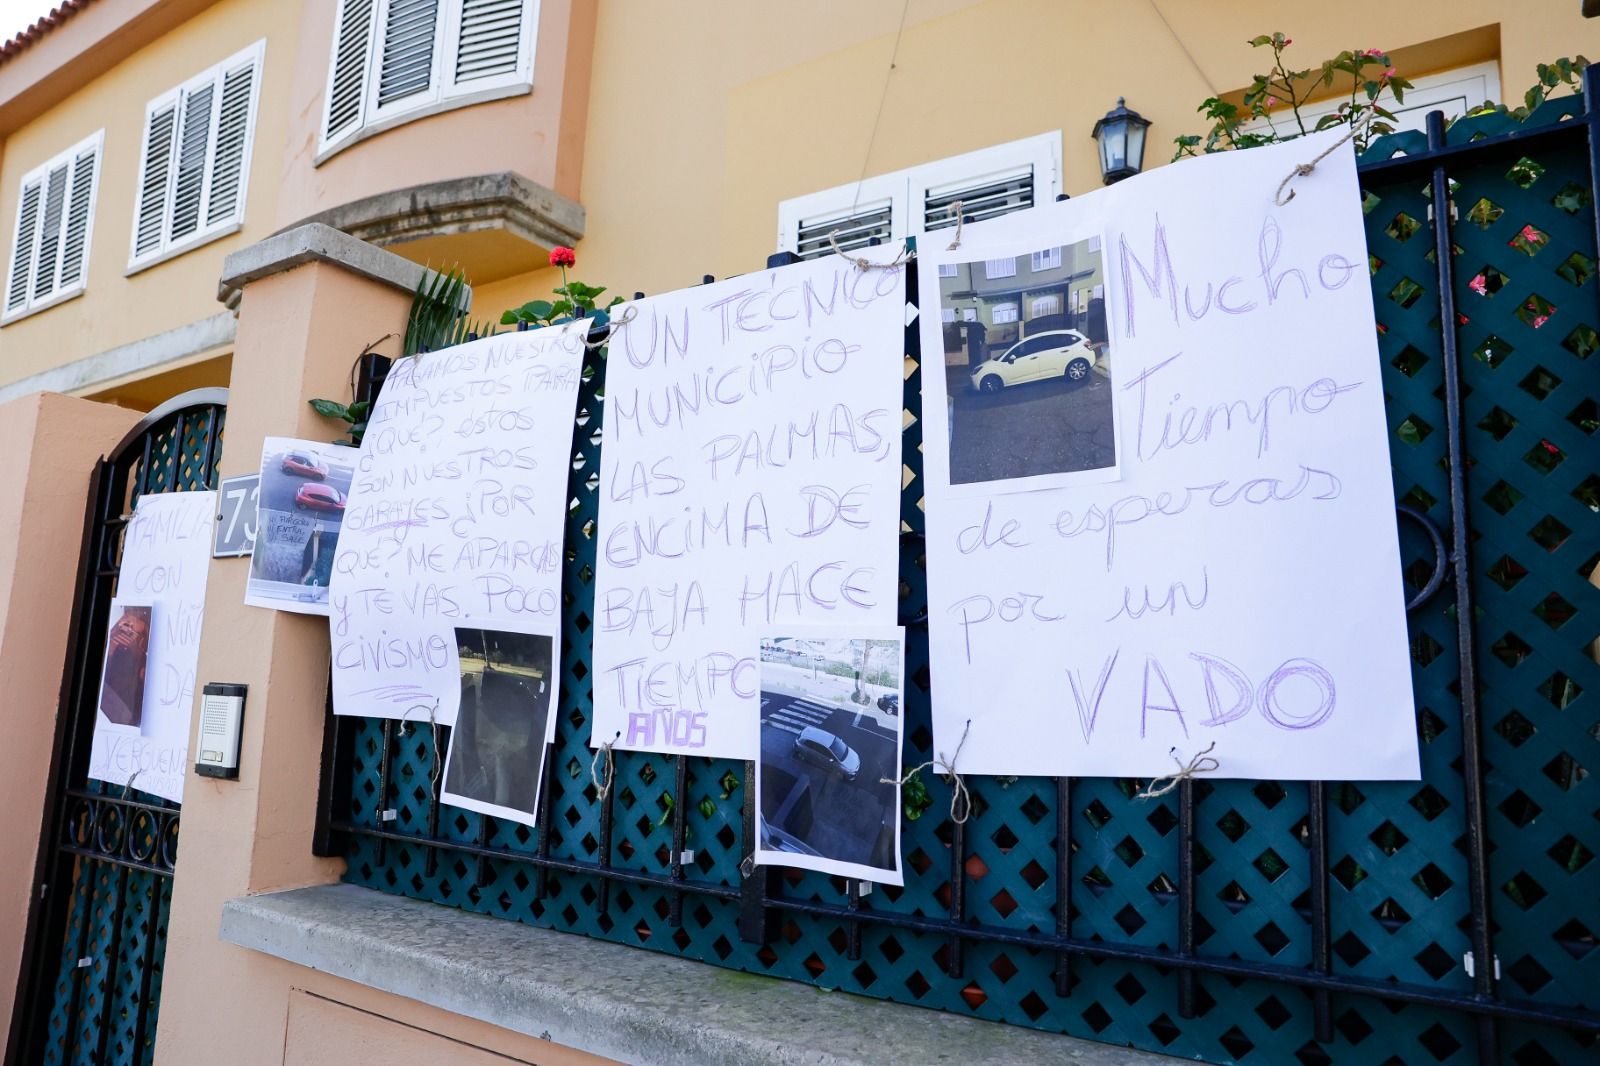 FAMILIA
CON
NIÑ
DA
VERGUENZ
73
NI FURGÓN
NI ENTRA,
NI SALE
PAGAMOS NUESTROS
IMPUESTOS PARA
¿QUÉ? éstos
SON NUESTROS
GARAJES ¿POR
QUÉ? ME APARCAS
y TE VAS. POCO
CIVISMO
UN TÉCNICO
MUNICIPIO
LAS PALMAS,
ENCIMA DE
BAJA HACE
TIEMPO
AÑOS
Mucho
Tiempo
de esperas
por un
VADO